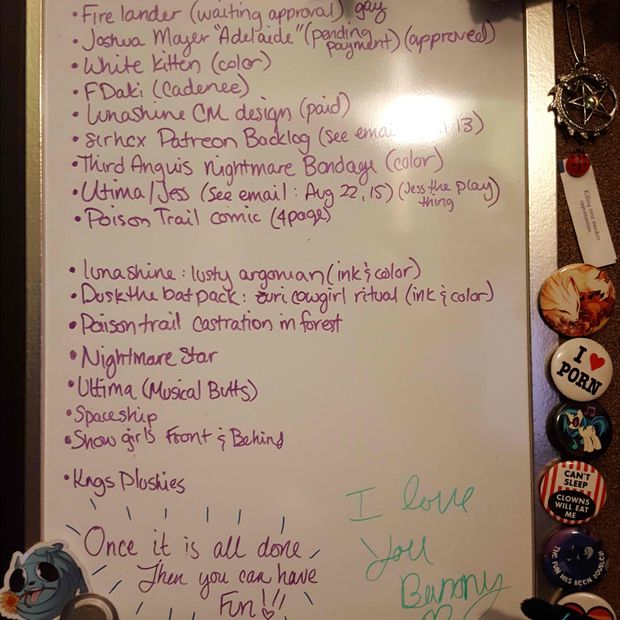 • Fire lander (waiting approval) gay
• Joshua Mayer "Adelaide" (pending payment) (approved)
• White Kitten (color)
• FDaki (Cadenee)
• Lunashine CM design (paid)
• Patreon Backlog (see 13)
• Third Anguis Nightmare Bondage (color)
• Ultima/Jess (See email: Aug 22, 15) (Jess the play thing
• Poison Trail comic (4pages)
• Lunashine: lusty argonian (ink & color)
• Dusk the bat pack: cowgirl ritual (ink & color)
• Poison trail castration in forest
• Nightmare Star
• Ultima (Musical Butts)
• Spaceship
• Show girls Front & Behind
• Kngs Plushies
Once it is all done
Then you can have
Fun!!!
I love
You
I
PORN
CAN'T
SLEEP
CLOWNS
WILL EAT
ME
THE FUN HAS BEEN DOUBLED!